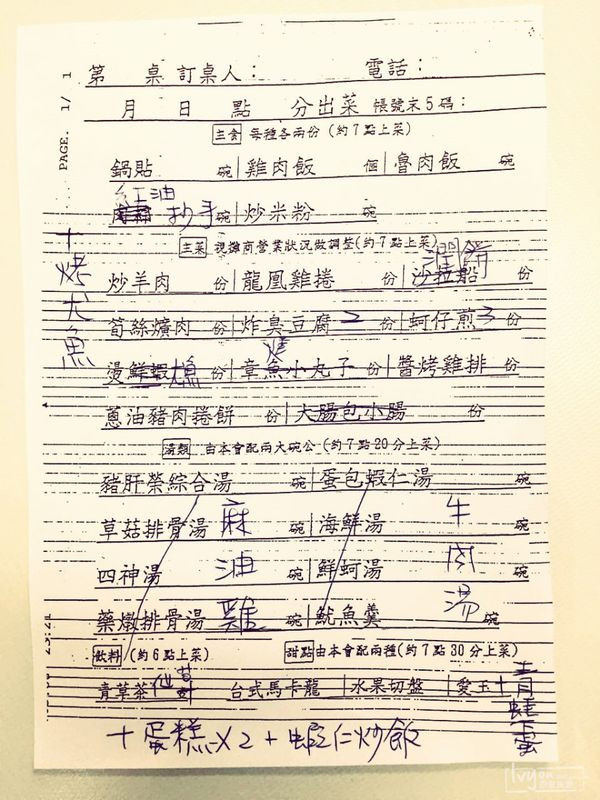 PAGE. 1/ 1
第 桌 訂桌人： 電話：
月 日 點 分出菜 帳號末5碼：
主食 每種各兩份 (約7點上菜)
鍋貼 碗 雞肉飯 個 魯肉飯 碗
紅油
抄手 碗 炒米粉 碗
主菜 視攤商營業狀況做調整(約7點上菜)
潤餅
炒羊肉 份 龍凰雞捲 份 沙拉船 份
筍絲爌肉 份 炸臭豆腐 2 份 蚵仔煎 3 份
燙鮮蝦 份 章魚燒小丸子 份 醬烤雞排 份
蔥油豬肉捲餅 份 大腸包小腸 份
十烤尤魚
湯類 由本會配兩大碗公(約7點20分上菜)
豬肝榮綜合湯 碗 蛋包蝦仁湯 碗
草菇排骨湯 麻 碗 海鮮湯 牛 碗
四神湯 油 碗 鮮蚵湯 肉 碗
藥燉排骨湯 雞 碗 魷魚羹 湯 碗
飲料 (約6點上菜) 甜點 由本會配兩種(約7點30分上菜)
青草茶 仙草 台式馬卡龍 水果切盤 愛玉
十青蛙下蛋
十蛋糕x2 + 蝦仁炒飯
Ivy on